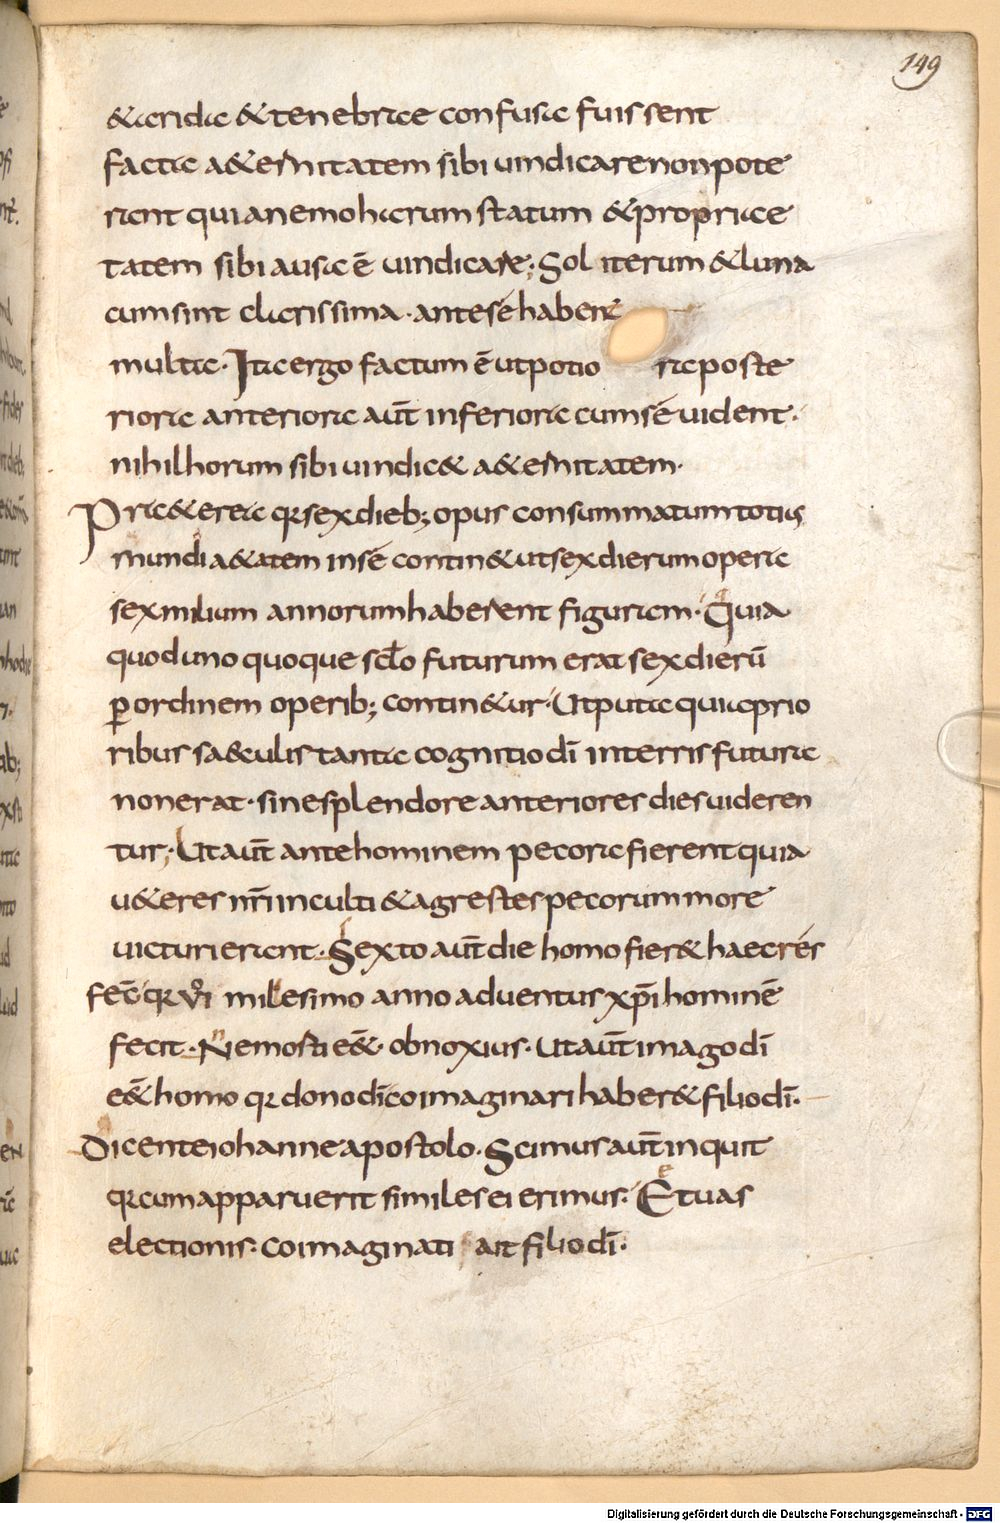 149
&aridae &tenebrae confusae fuissent
factae a&ernitatem sibi uindicare non pote
rant qui a nemo harum statum &propriae
tatem sibi ausa ē uindicare; Sol iterum &luna
cum sint clarissima · ante se habent
multa · Ita ergo factum ē ut potio ra poste
riora anteriora aūt inferiora cum se uident ·
nihil horum sibi uindic& a&ernitatem ·
Praeterea qr sex dieb; opus consummatum totius
mundi a&atem in se contin& ut sex dierum opera
sex milium annorum haberent figuram · Quia
quod uno quoque sclo futurum erat sex dierū
p ordinem operib; contin&ur · Ut puta quia prio
ribus saeculis tanta cognitio dī in terris futura
non erat · sine splendore anteriores dies uideren
tur; Ut aūt ante hominem pecora fierent quia
u&eres nr̄i inculti &agrestes pecorum more
uicturi erant · Sexto aūt die homo fier& haec res
fec̄ qr VI millesimo anno aduentus xp̄i hominē
fecit · Ne mosti e&̄ obnoxius · Ut aūt imago dī
e&̄ homo qr dono dī coimaginari haber& filio dī ·
Dicente iohanne apostolo · Scimus aūt inquit
qr cum apparuerit similes ei erimus · Et uas
electionis · coimaginati ait filio dī ·
Digitalisierung gefördert durch die Deutsche Forschungsgemeinschaft - DFG